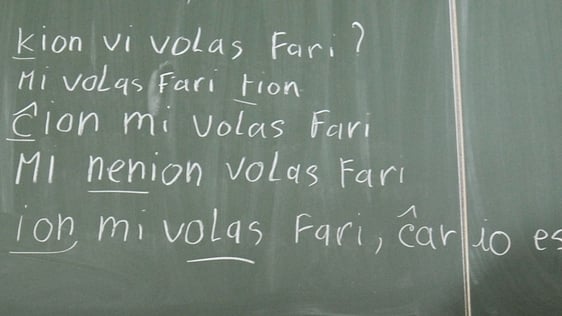 kion vi volas Fari?
Mi volas Fari tion
Ĉion mi volas Fari
MI nenion volas Fari
ion mi volas Fari, ĉar io es